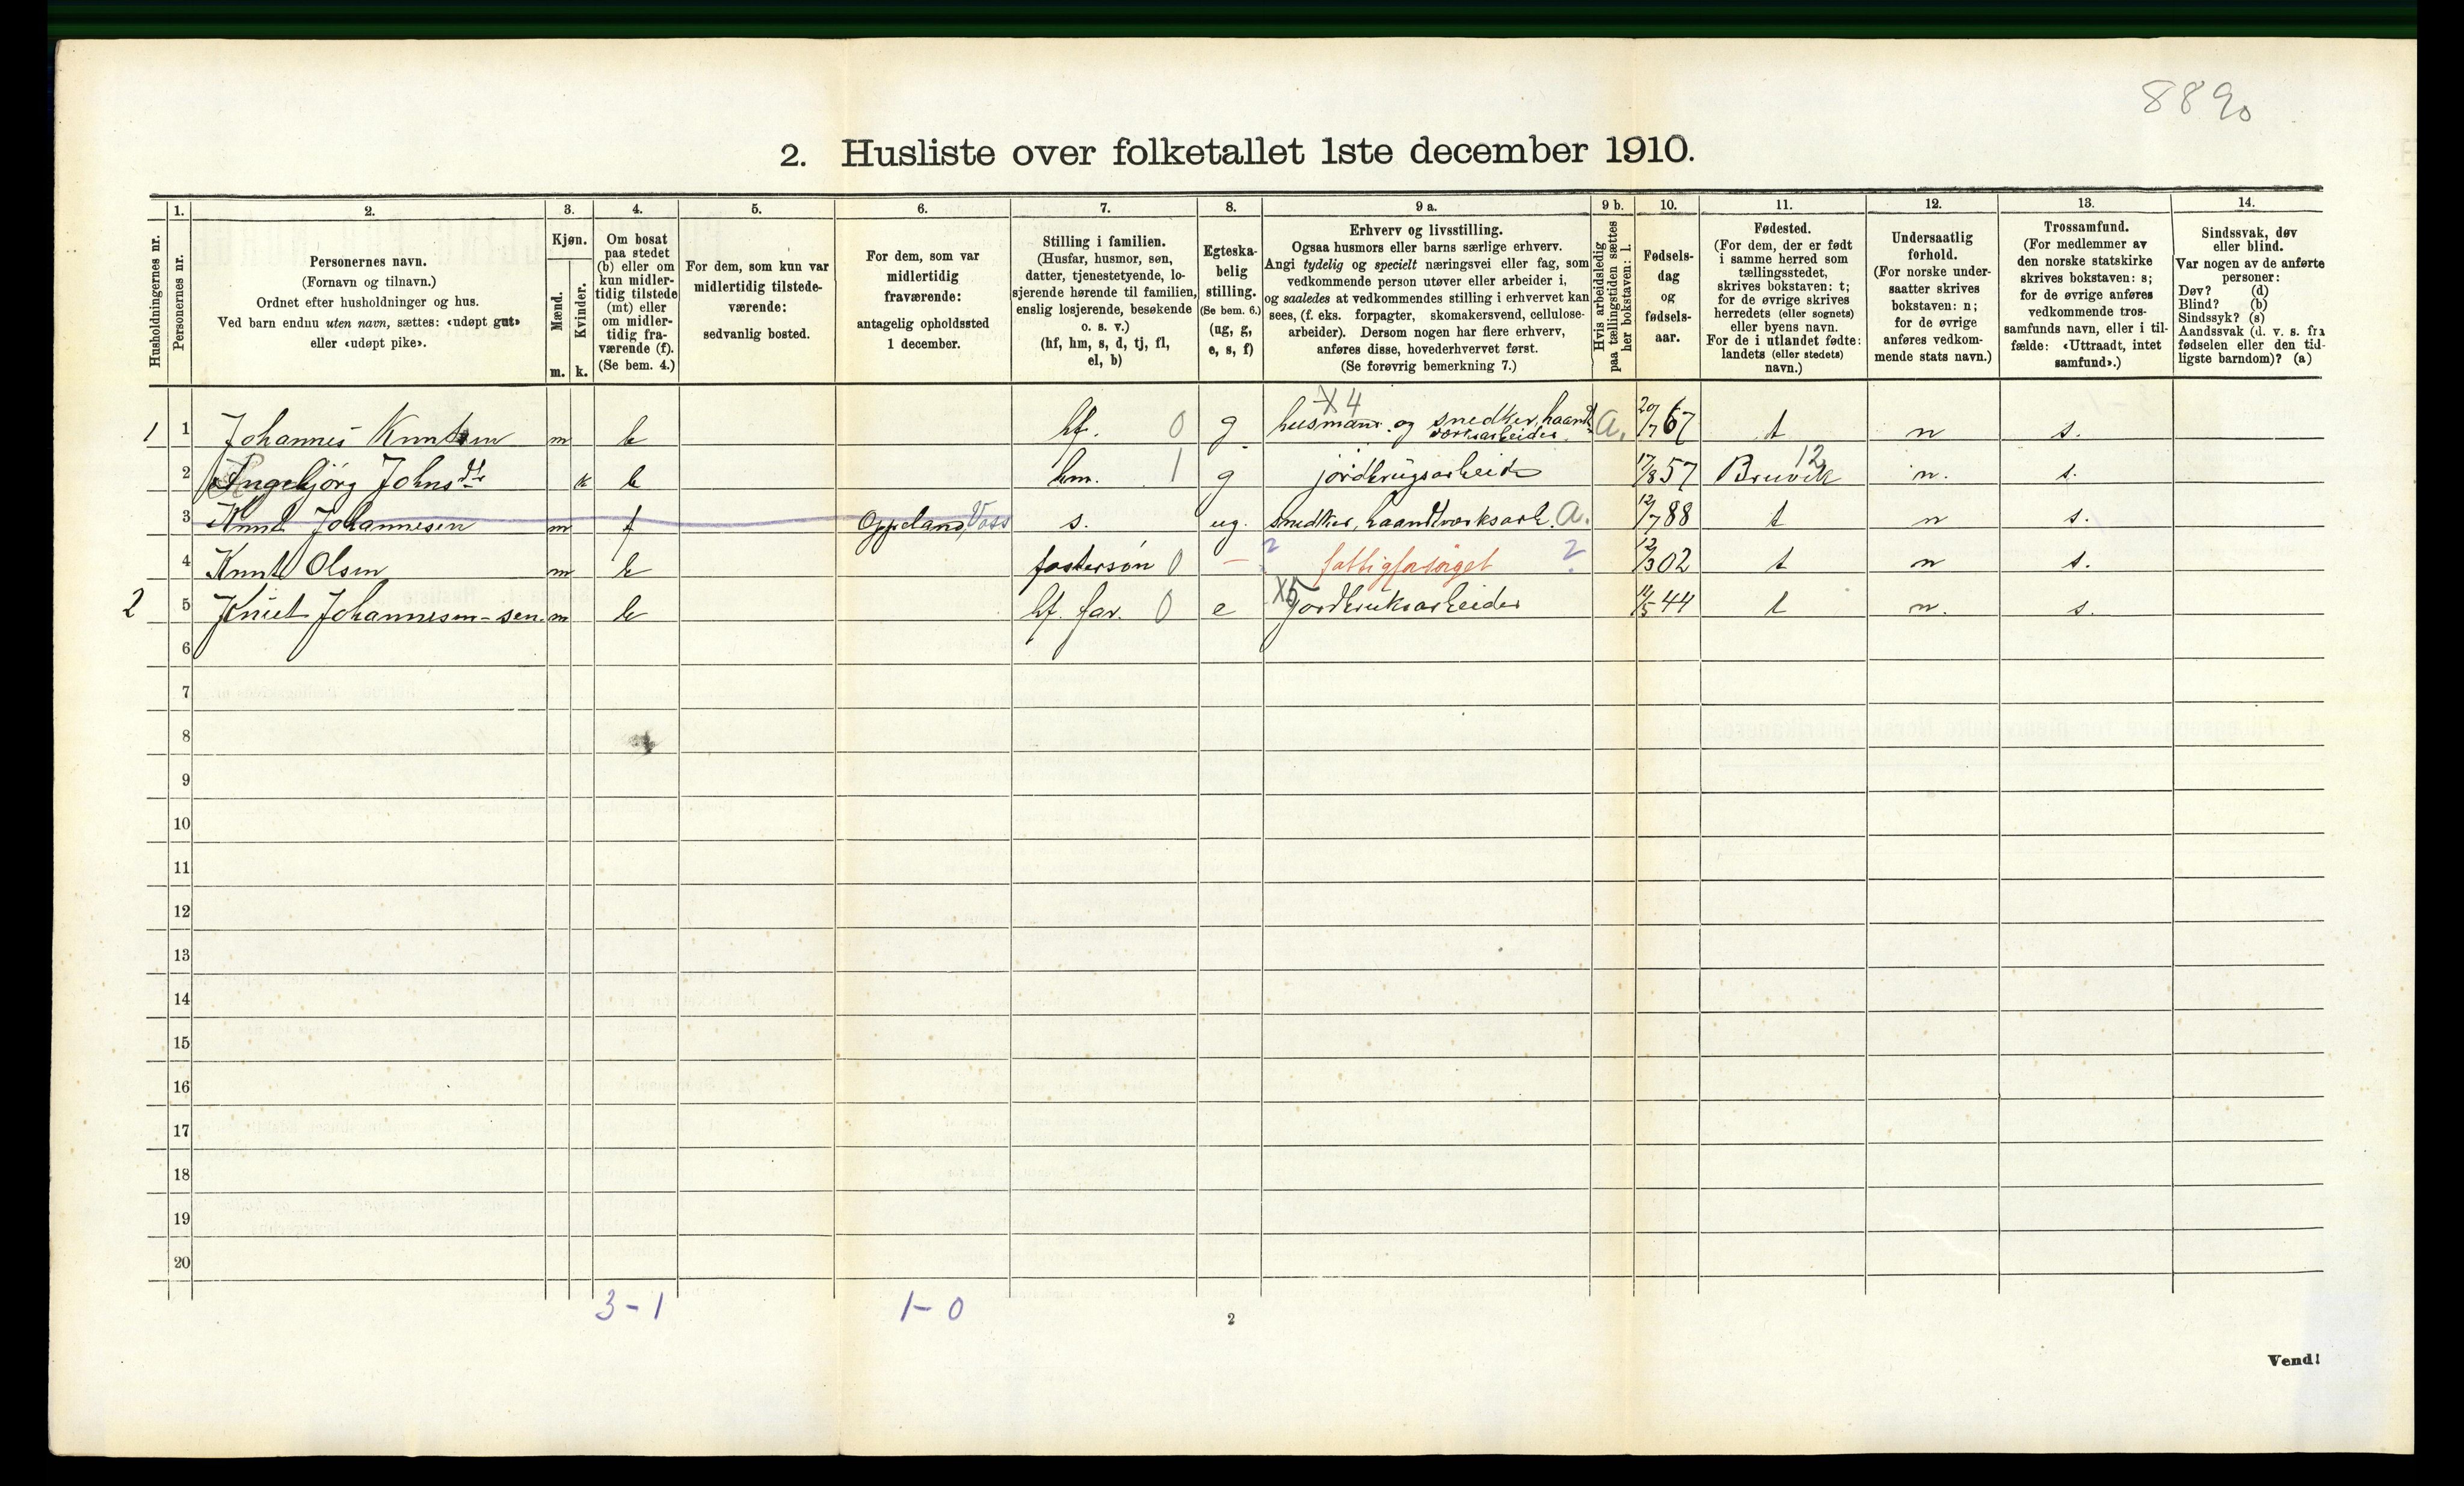 8890
2. Husliste over folketallet 1ste december 1910.
Husholdningernes nr.
1.
Personernes nr.
2.
Personernes navn.
(Fornavn og tilnavn.)
Ordnet efter husholdninger og hus.
Ved barn endnu uten navn, sættes: «udøpt gut»
eller «udøpt pike».
3.
Kjøn.
Mænd.
Kvinder.
m. k.
4.
Om bosat
paa stedet
(b) eller om
kun midler-
tidig tilstede
(mt) eller
om midler-
tidig fra-
værende (f).
(Se bem. 4.)
5.
For dem, som kun var
midlertidig tilstede-
værende:
sedvanlig bosted.
6.
For dem, som var
midlertidig
fraværende:
antagelig opholdssted
1 december.
7.
Stilling i familien.
(Husfar, husmor, søn,
datter, tjenestetyende, lo-
sjerende hørende til familien,
enslig losjerende, besøkende
o. s. v.)
(hf, hm, s, d, tj, fl,
el, b)
8.
Egteska-
belig
stilling.
(Se bem. 6.)
(ug, g,
e, s, f)
9 a.
Erhverv og livsstilling.
Ogsaa husmors eller barns særlige erhverv.
Angi tydelig og specielt næringsvei eller fag, som
vedkommende person utøver eller arbeider i,
og saaledes at vedkommendes stilling i erhvervet kan
sees, (f. eks. forpagter, skomakersvend, cellulose-
arbeider). Dersom nogen har flere erhverv,
anføres disse, hovederhvervet først.
(Se forøvrig bemerkning 7.)
9 b.
Hvis arbeidsledig
paa tællingstiden sættes
her bokstaven: l.
10.
Fødsels-
dag
og
fødsels-
aar.
11.
Fødested.
(For dem, der er født
i samme herred som
tællingsstedet,
skrives bokstaven: t;
for de øvrige skrives
herredets (eller sognets)
eller byens navn.
For de i utlandet fødte:
landets (eller stedets)
navn.)
12.
Undersaatlig
forhold.
(For norske under-
saatter skrives
bokstaven: n;
for de øvrige
anføres vedkom-
mende stats navn.)
13.
Trossamfund.
(For medlemmer av
den norske statskirke
skrives bokstaven: s;
for de øvrige anføres
vedkommende tros-
samfunds navn, eller i til-
fælde: «Uttraadt, intet
samfund».)
14.
Sindssvak, døv
eller blind.
Var nogen av de anførte
personer:
Døv? (d)
Blind? (b)
Sindssyk? (s)
Aandssvak (d. v. s. fra
fødselen eller den tid-
ligste barndom)? (a)
X4
1 1 Johannes Knutsen m b hf. 0 g husmann og snedker, haand- a. 20/7 67 t n s.
værksarbeider.
2 Ingebjörg Johnsdt k b hm. 1 g jordbrugsarbeide 17/8 57 Bruvik 12 n. s.
3 Knut Johannesen m f Oppeland, Voss s. ug. snedker, haandværksarb. a. 12/7 88 t n s.
4 Knut Olsen m b fostersön 0 – ? fattigforsörget ? 12/3 02 t n s.
2 5 Knut Johannesen-sen. m b hf. far. 0 e X5 Jordbruksarbeider 14/5 44 t n. s.
6
7
8
9
10
11
12
13
14
15
16
17
18
19
20
3-1 1-0
2
Vend!